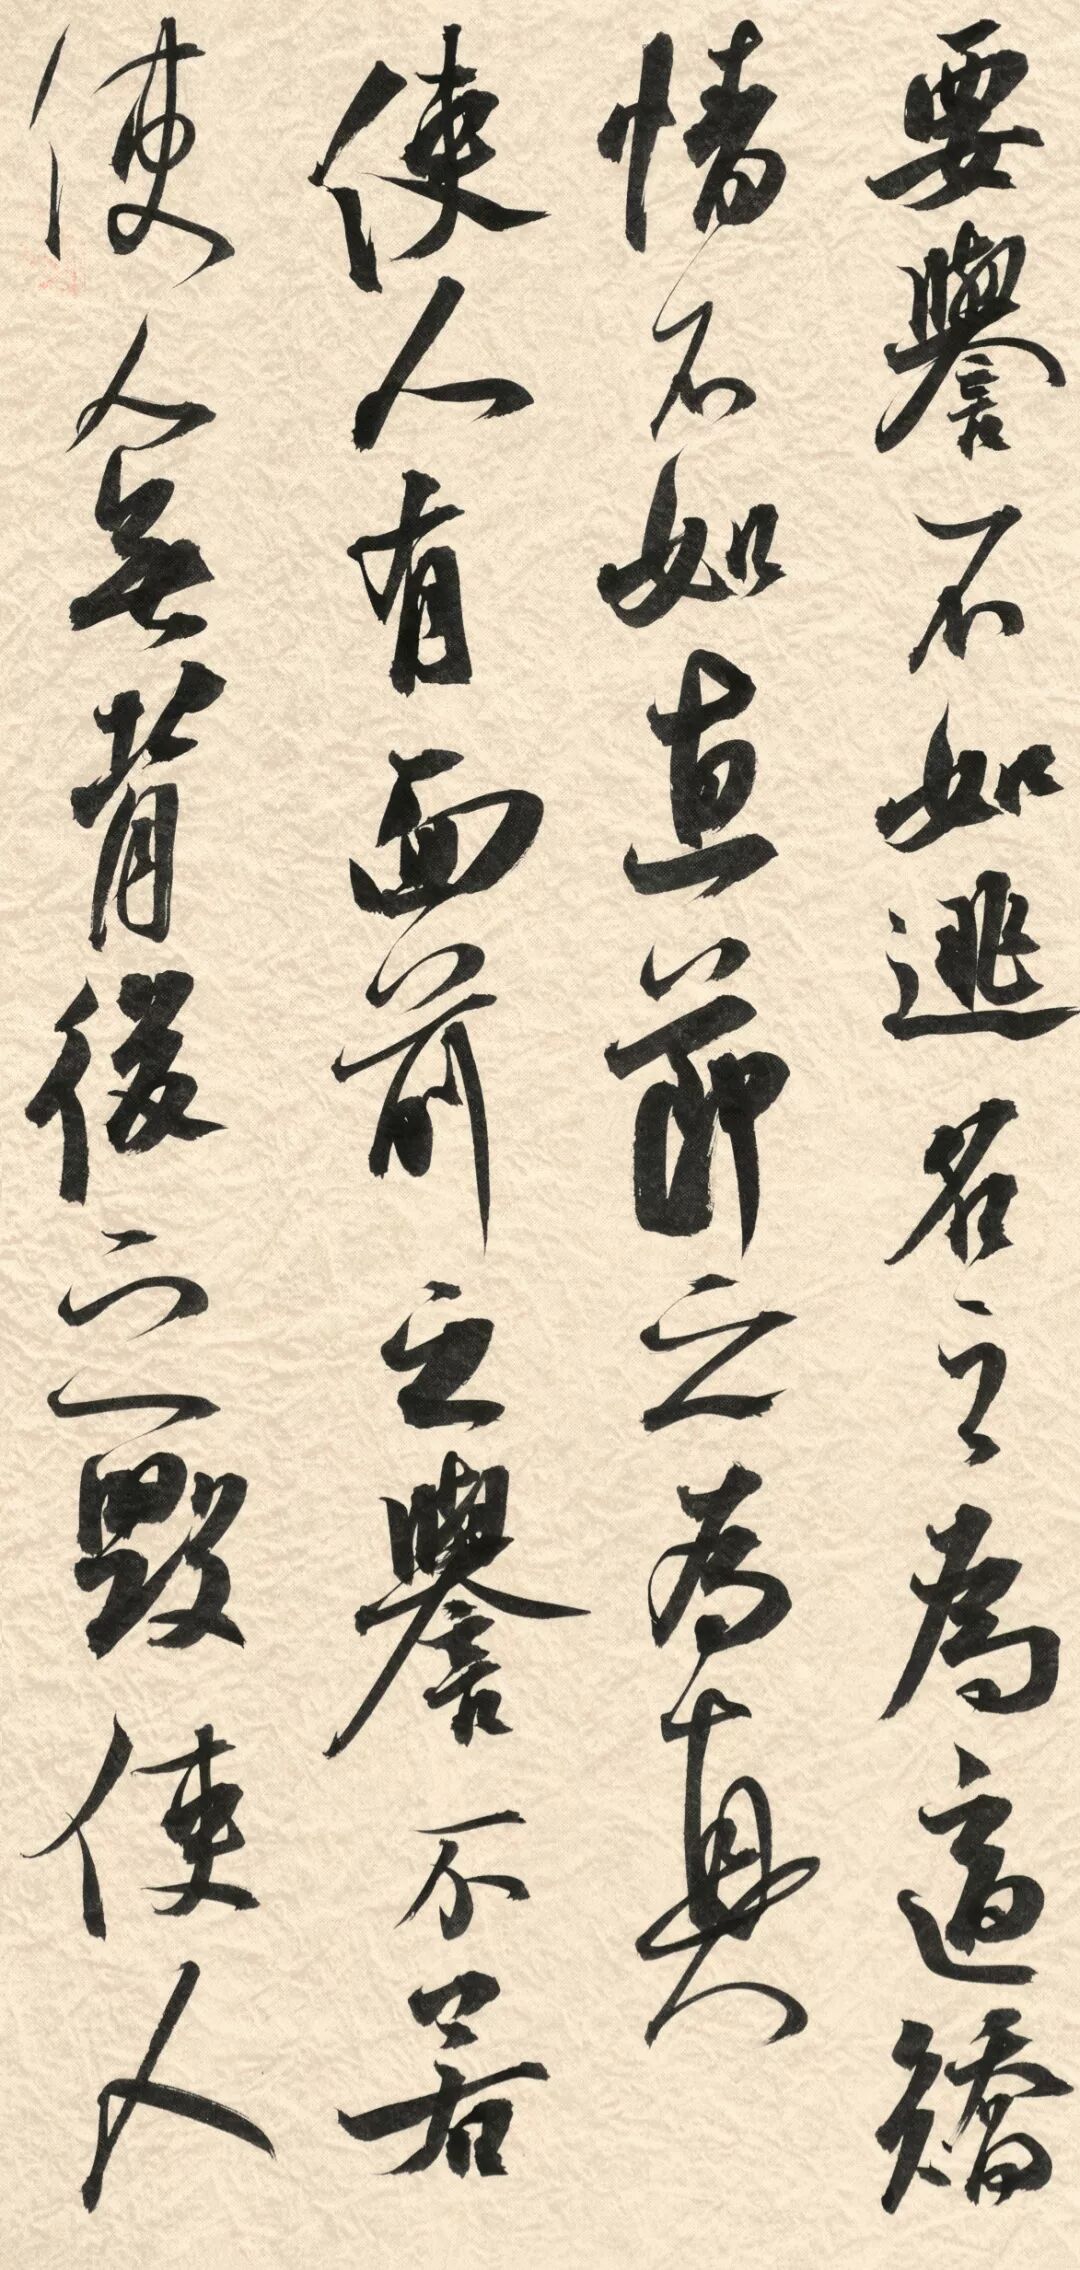 要譽不如逃名之為適矯
情不如直節之為真
使人有面前之譽不若
使人無背後之毀使人